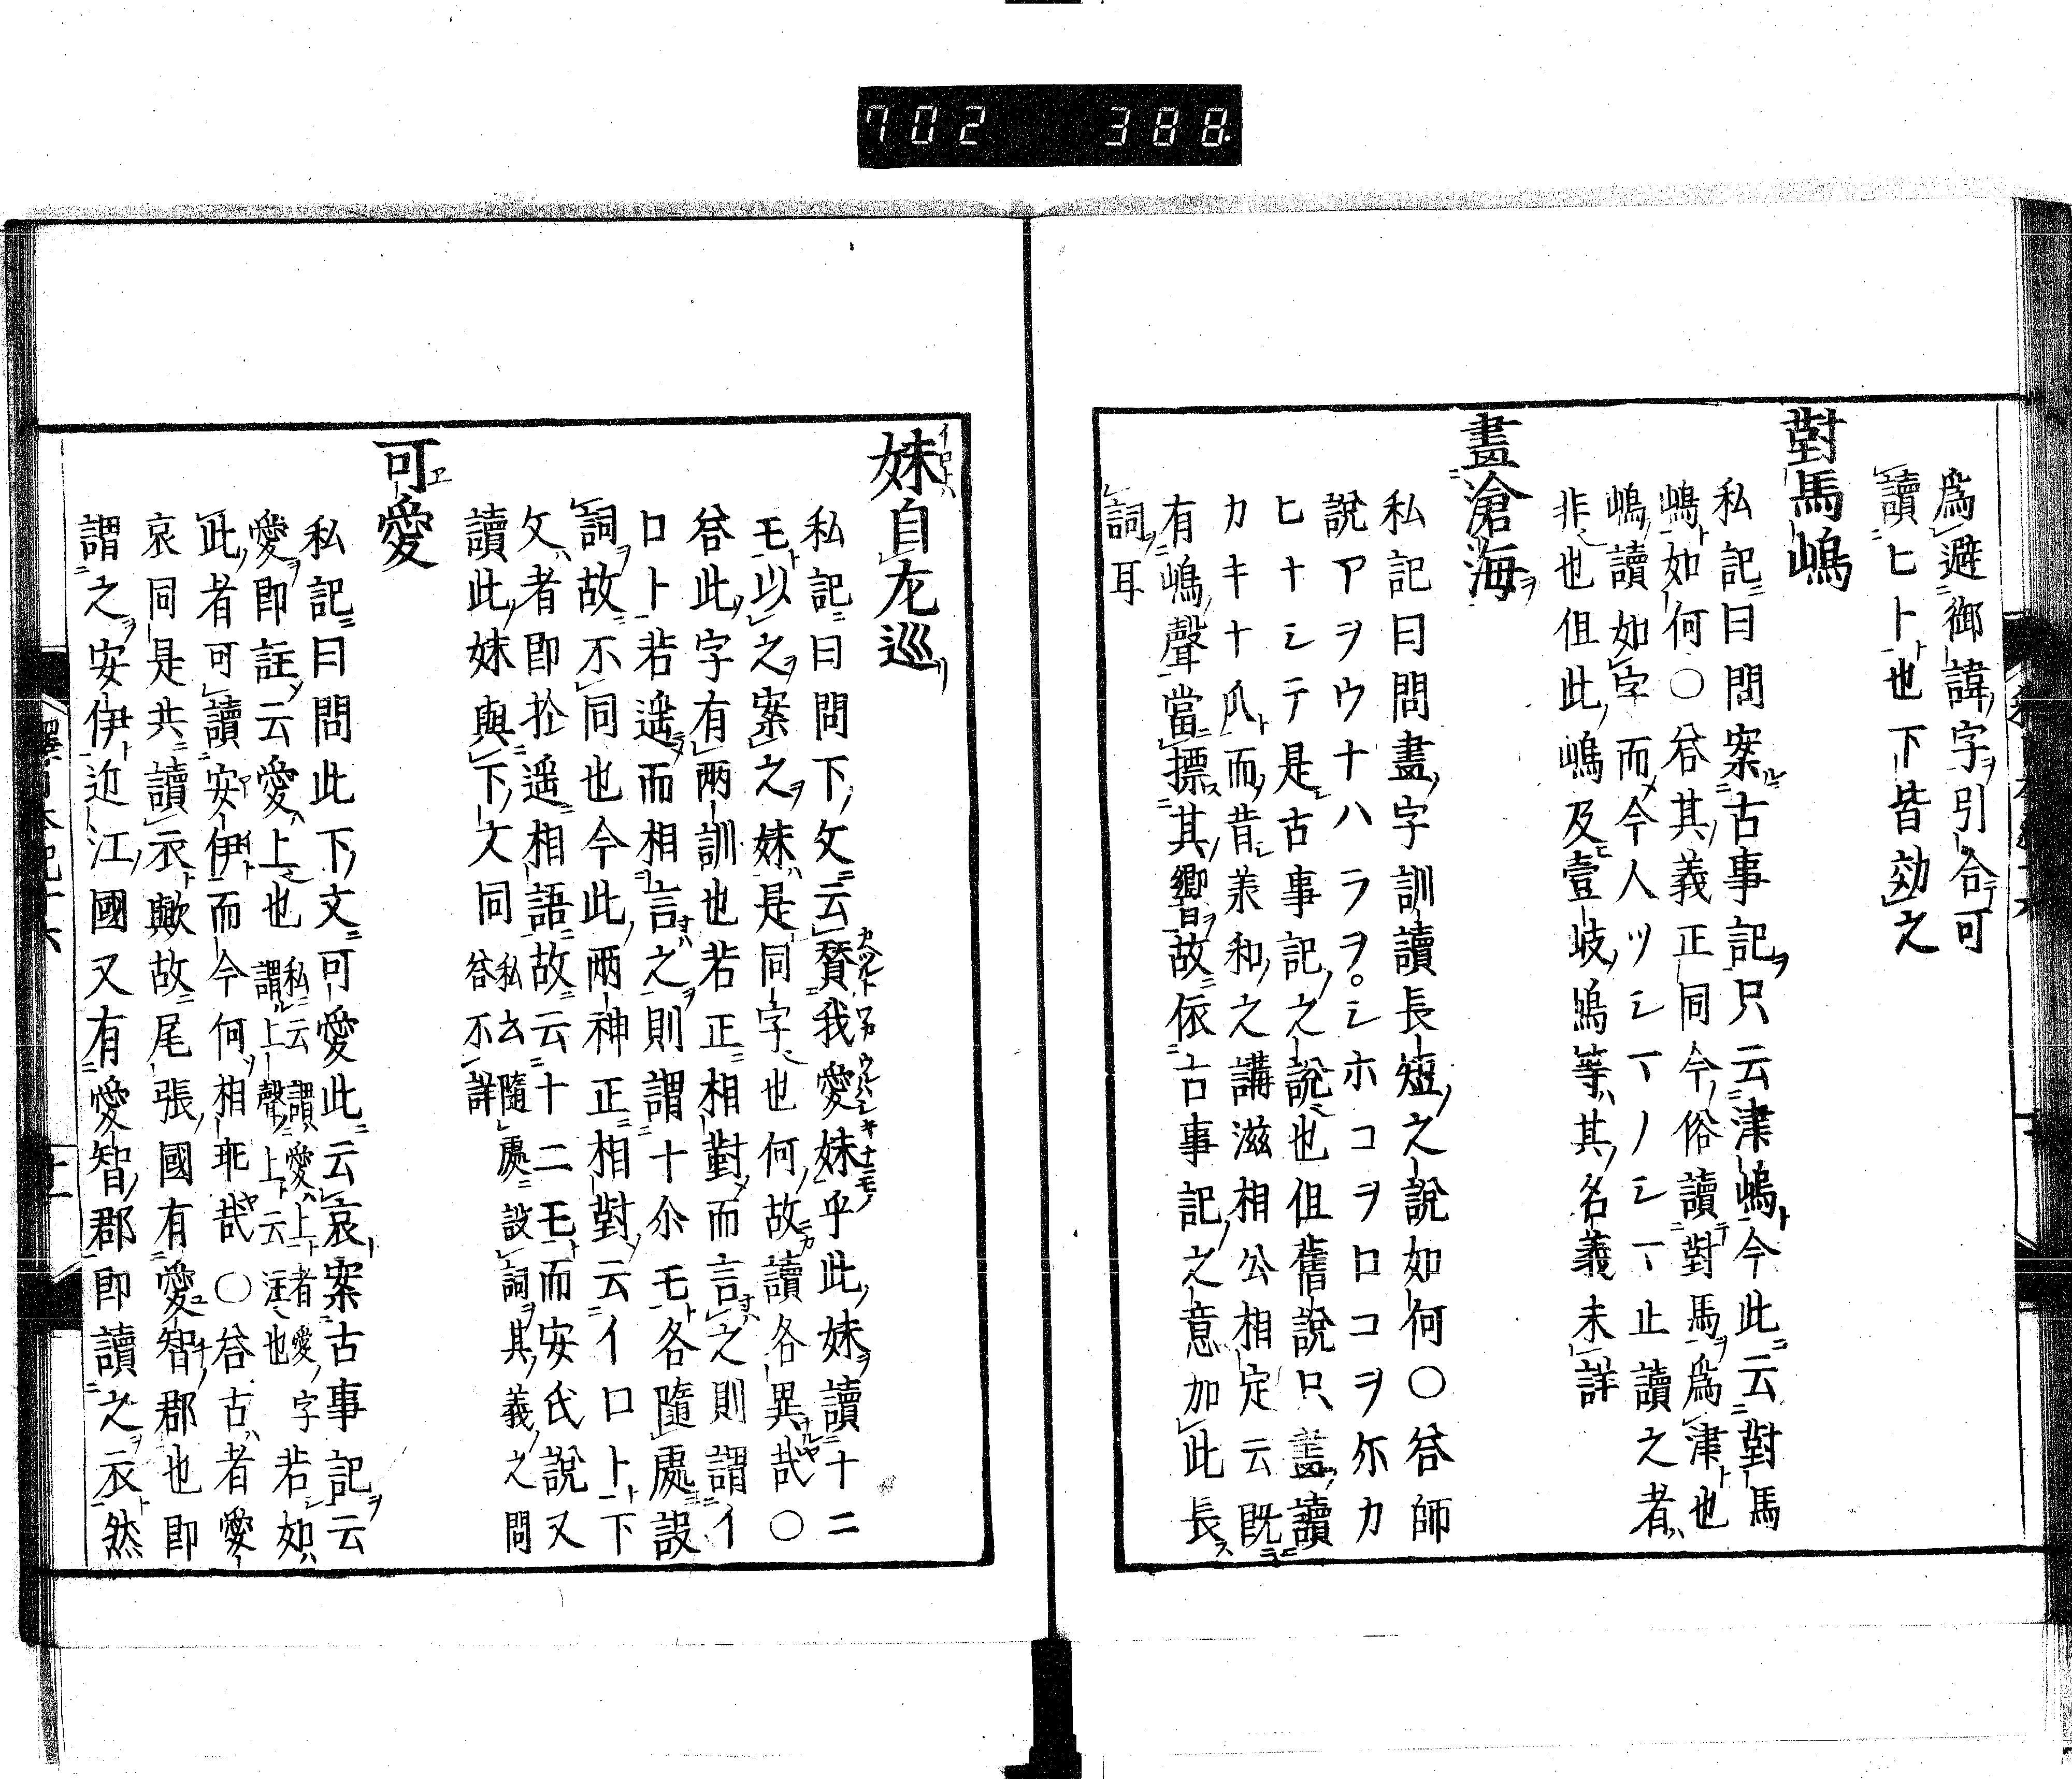 702 388
爲避御諱字引合可
讀ヒト也下皆効之
對馬嶋
私記曰問案古事記只云津嶋今此云對馬
嶋如何○答其義正同今俗讀對馬爲津也
嶋讀如字而今人ツシマノシマ止讀之者
非也但此嶋及壹岐嶋等其名義未詳
畫滄海
私記曰問畫字訓讀長短之說如何○答師
說アヲウナハラヲシホコヲロコヲ尓カ
ヒナシテ是古事記之說也但舊說只畫讀
カキナ爪而昔兼和之講滋相公相定云既
有嶋聲當標其響故依古事記之意加此長
詞耳
妹自左巡
私記曰問下文云賛我愛妹乎此妹讀十二
モ以之案之妹是同字也何故讀各異哉○
答此字有兩訓也若正相對而言之則謂イ
ロト若遥而相言之則謂十尓モ各隨處設
詞故不同也今此兩神正相對云イロト下
文者即於遥相語故云十二モ而安氏說又
讀此妹與下文同 私云隨處設詞其義之問
答不詳
可愛
私記曰問此下文可愛此云哀案古事記云
愛即註云愛上也 私云謂愛上者愛字若如
謂上聲上云注也
此者可讀安伊而今何相乖哉○答古者愛
哀同是共讀衣歟故尾張國有愛智郡也即
謂之安伊近江國又有愛智郡即讀之衣然